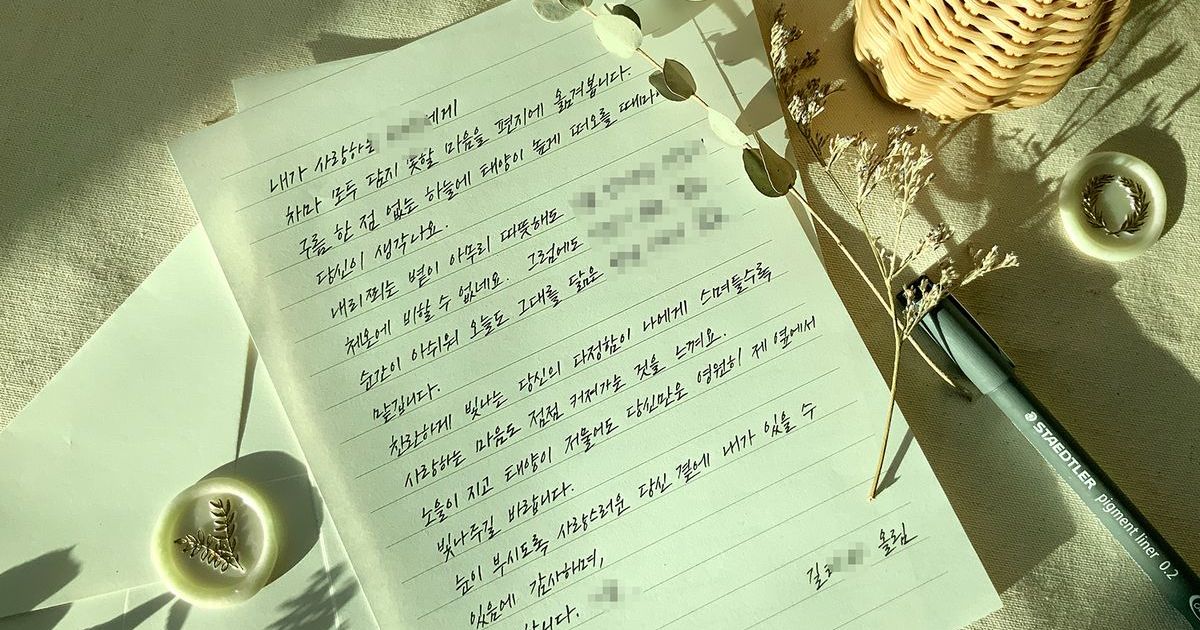 내가 사랑하는 에게
차마 모두 담지 못할 마음을 편지에 옮겨봅니다.
구름 한 점 없는 하늘에 태양이 높게 떠오를 때마다
당신이 생각나요.
내리쬐는 볕이 아무리 따뜻해도
체온에 비할 수 없네요. 그럼에도
순간이 아쉬워 오늘도 그대를 닮은
맡깁니다.
찬란하게 빛나는 당신의 다정함이 나에게 스며들수록
사랑하는 마음도 점점 커져가는 것을 느껴요.
노을이 지고 태양이 저물어도 당신만은 영원히 제 옆에서
빛나주길 바랍니다.
눈이 부시도록 사랑스러운 당신 곁에 내가 있을 수
있음에 감사하며,
합니다.
올림
STAEDTLER pigment liner 0.2